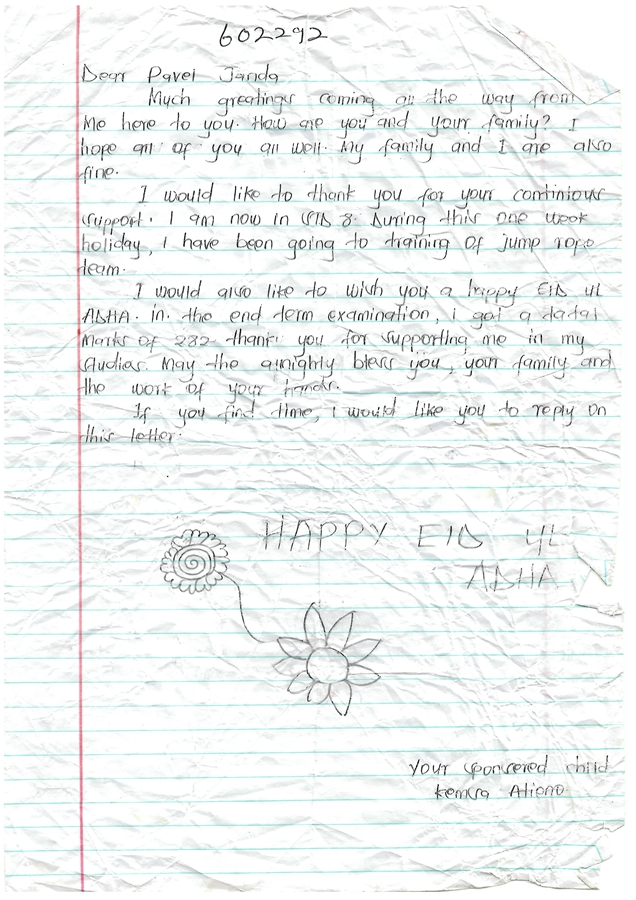 602292
Dear Pavel Janda
Much greetings coming all the way from
Me here to you. How are you and your family? I
hope all of you all well. My family and I are also
fine.
I would like to thank you for your continious
support. I am now in STD 8. During this one week
holiday, I have been going to training of jump rope
team.
I would also like to wish you a happy EID UL
ADHA. In the end term examination, i got a total
Marks of 282 thank you for supporting me in my
studies. May the almighty bless you, your family and
the work of your hands.
If you find time, I would like you to reply on
this letter.
HAPPY EID UL
ADHA
Your sponsered child